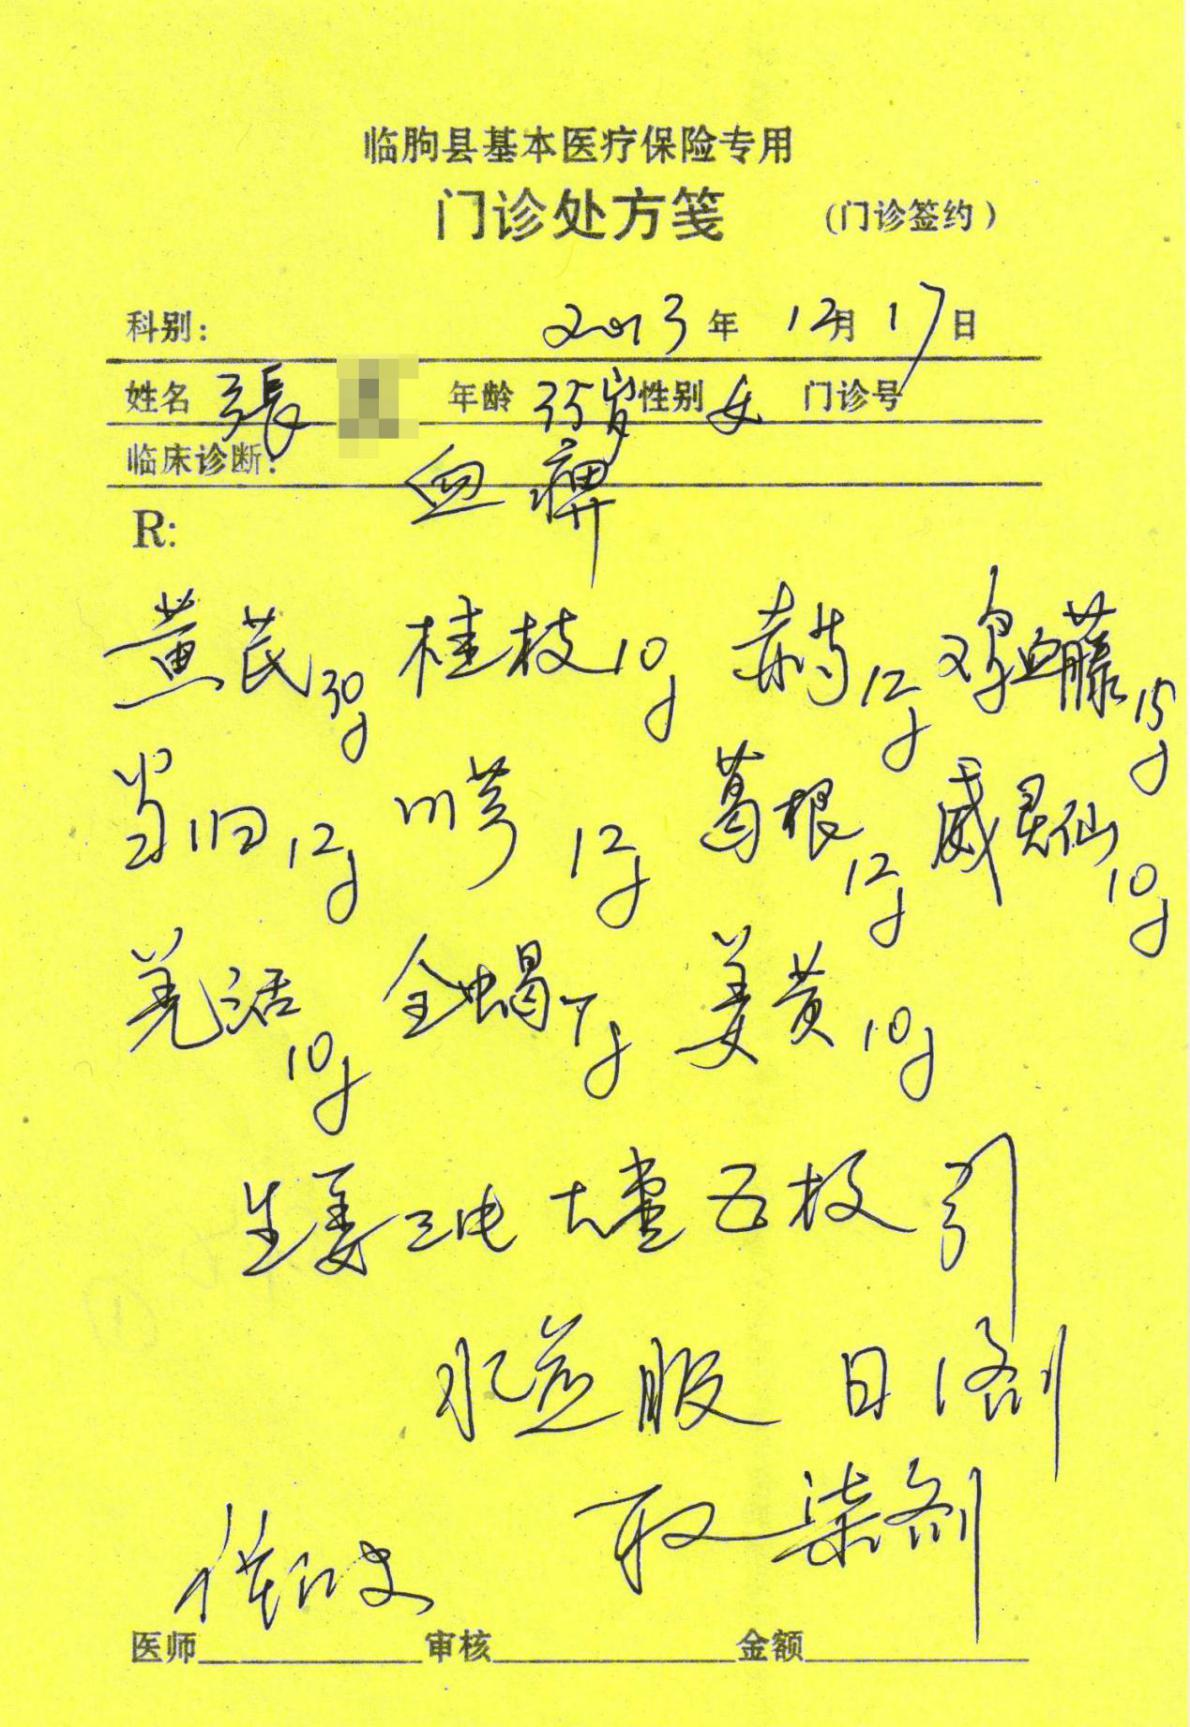 临朐县基本医疗保险专用
门诊处方笺 (门诊签约)
科别: 2013年 12月 17日
姓名 張 年龄 35岁 性别 女 门诊号
临床诊断: 血痹
R:
黄芪30g 桂枝10g 赤芍12g 鸡血藤15g
当归12g 川芎12g 葛根12g 威灵仙10g
羌活10g 全蝎7g 姜黄10g
生姜三片 大枣五枚 引
水煎服 日1剂
取柒剂
医师 审核 金额